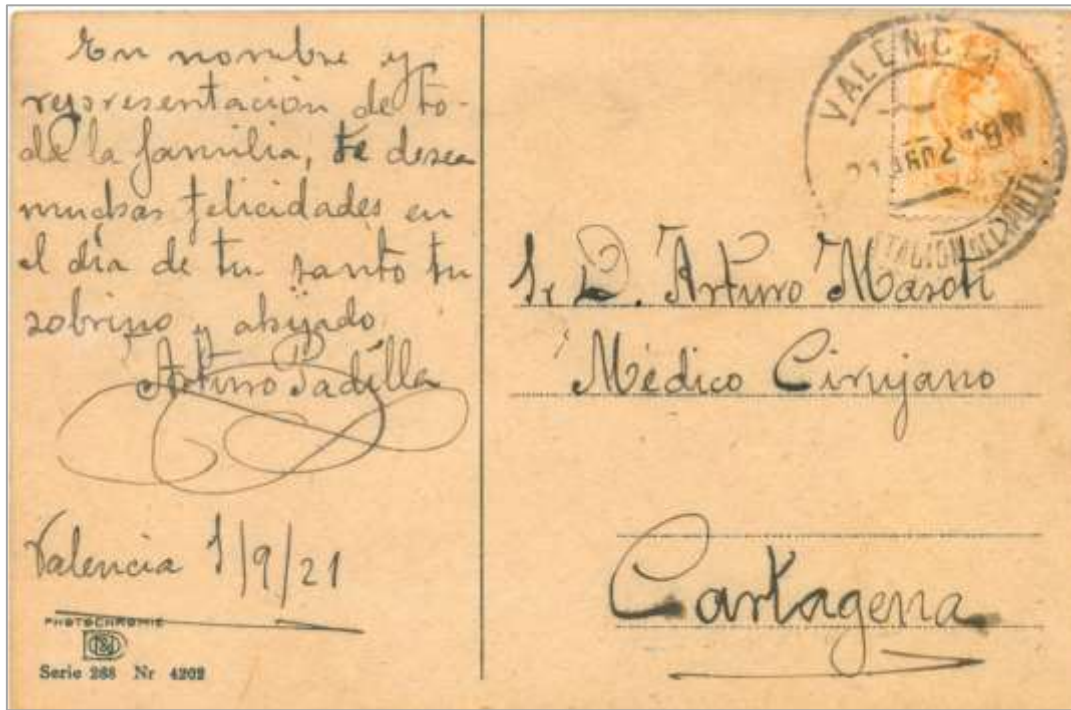 En nombre y
representación de to-
da la familia, te desea
muchas felicidades en
el día de tu santo tu
sobrino y ahijado
Arturo Padilla
Valencia 1/9/21
PHOTOCHROMIE
Serie 268 Nr 4202
VALENCIA
Sr D. Arturo Masoti
Médico Cirujano
Cartagena